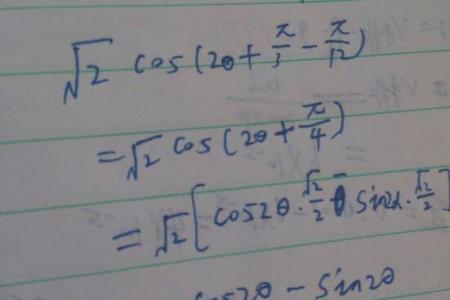 √2 cos(2θ + π/3 − π/12)
= √2 cos(2θ + π/4)
= √2 [cos2θ · √2/2 − sin2θ · √2/2]
cos2θ − sin2θ